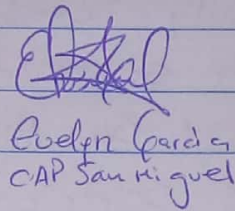 Evelyn Garcia
CAP San Miguel